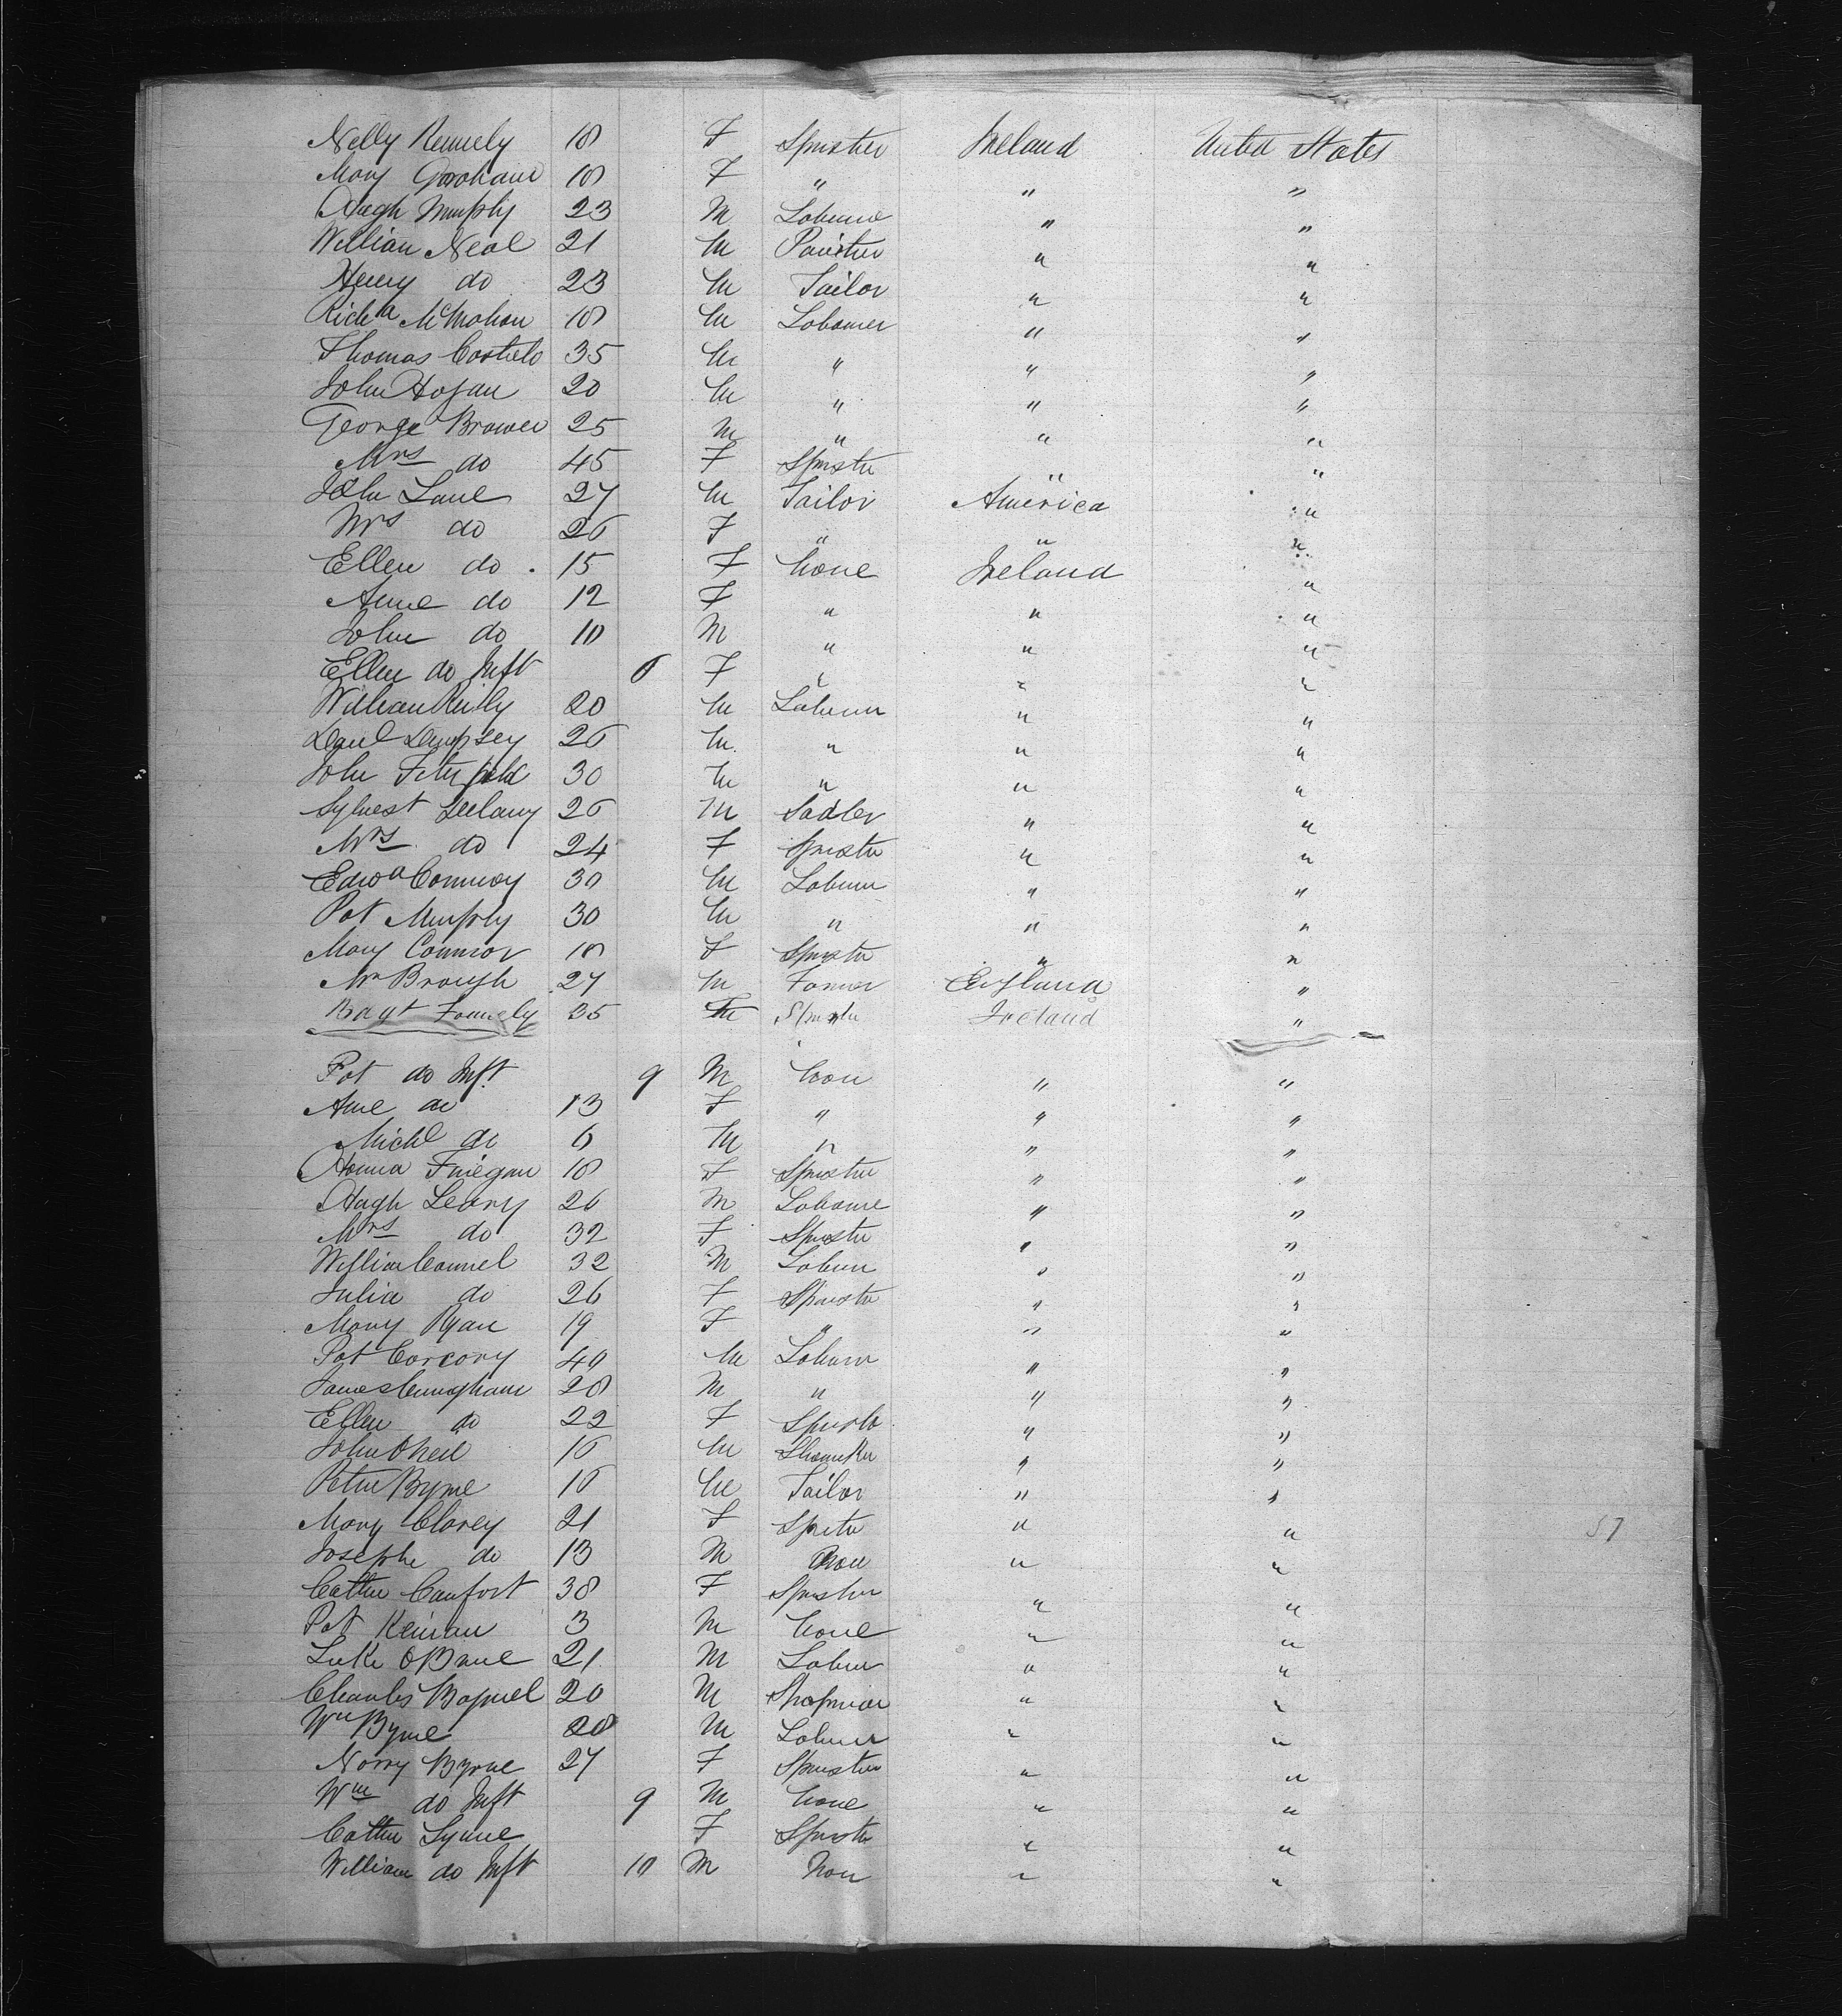 Nelly Kennely 18 F Spinster Ireland United States
Mary Grahame 18 F " " "
Hugh Murphy 23 M Laborer " "
William Neal 21 M Painter " "
Henry do 23 M Tailor " "
Richd McMahon 18 M Laborer " "
Thomas Costelo 35 M " " "
John Hogan 20 M " " "
George Brower 25 M " " "
Mrs do 45 F Spinster " "
John Lane 27 M Tailor America "
Mrs do 26 F " " "
Ellen do 15 F None Ireland "
Anne do 12 F " " "
John do 10 M " " "
Ellen do Inft 6 F " " "
William Reilly 20 M Laborer " "
Danl Dempsey 26 M " " "
John 30 M " " "
Sylvest Delany 26 M Sadler " "
Mrs do 24 F Spinster " "
Edwd Conway 30 M Laborer " "
Pat Murphy 30 M " " "
Mary Connor 18 F Spinster " "
Wm Brough 27 M Farmer England "
Bragt 35 F Spinster Ireland "
Pat do Inft 9 M Non " "
Anne do 13 F " " "
Michl do 6 M " " "
Honna Finegan 18 F Spinster " "
Hugh Leary 26 M Laborer " "
Mrs do 32 F Spinster " "
William Connel 32 M Laborer " "
Julia do 26 F Spinster " "
Mary Ryan 19 F " " "
Pat Corcory 40 M Laborer " "
James Cunngham 28 M " " "
Ellen do 22 F Spinster " "
John ONeil 16 M " "
Peter Byrne 18 M Tailor " "
Mary Clarey 21 F Spinster " "
57
Joseph do 13 M Non " "
Cathe Canfort 38 F Spinster " "
Pat Keirnan 3 M None " "
Luke OBrne 21 M Laborer " "
Charles Bagnel 20 M " "
Wm Byrne 28 M Laborer " "
Norry Byrne 27 F Spinster " "
Wm do Inft 9 M None " "
Cathe Lynne F Spinster " "
William do Inft 10 M Non " "